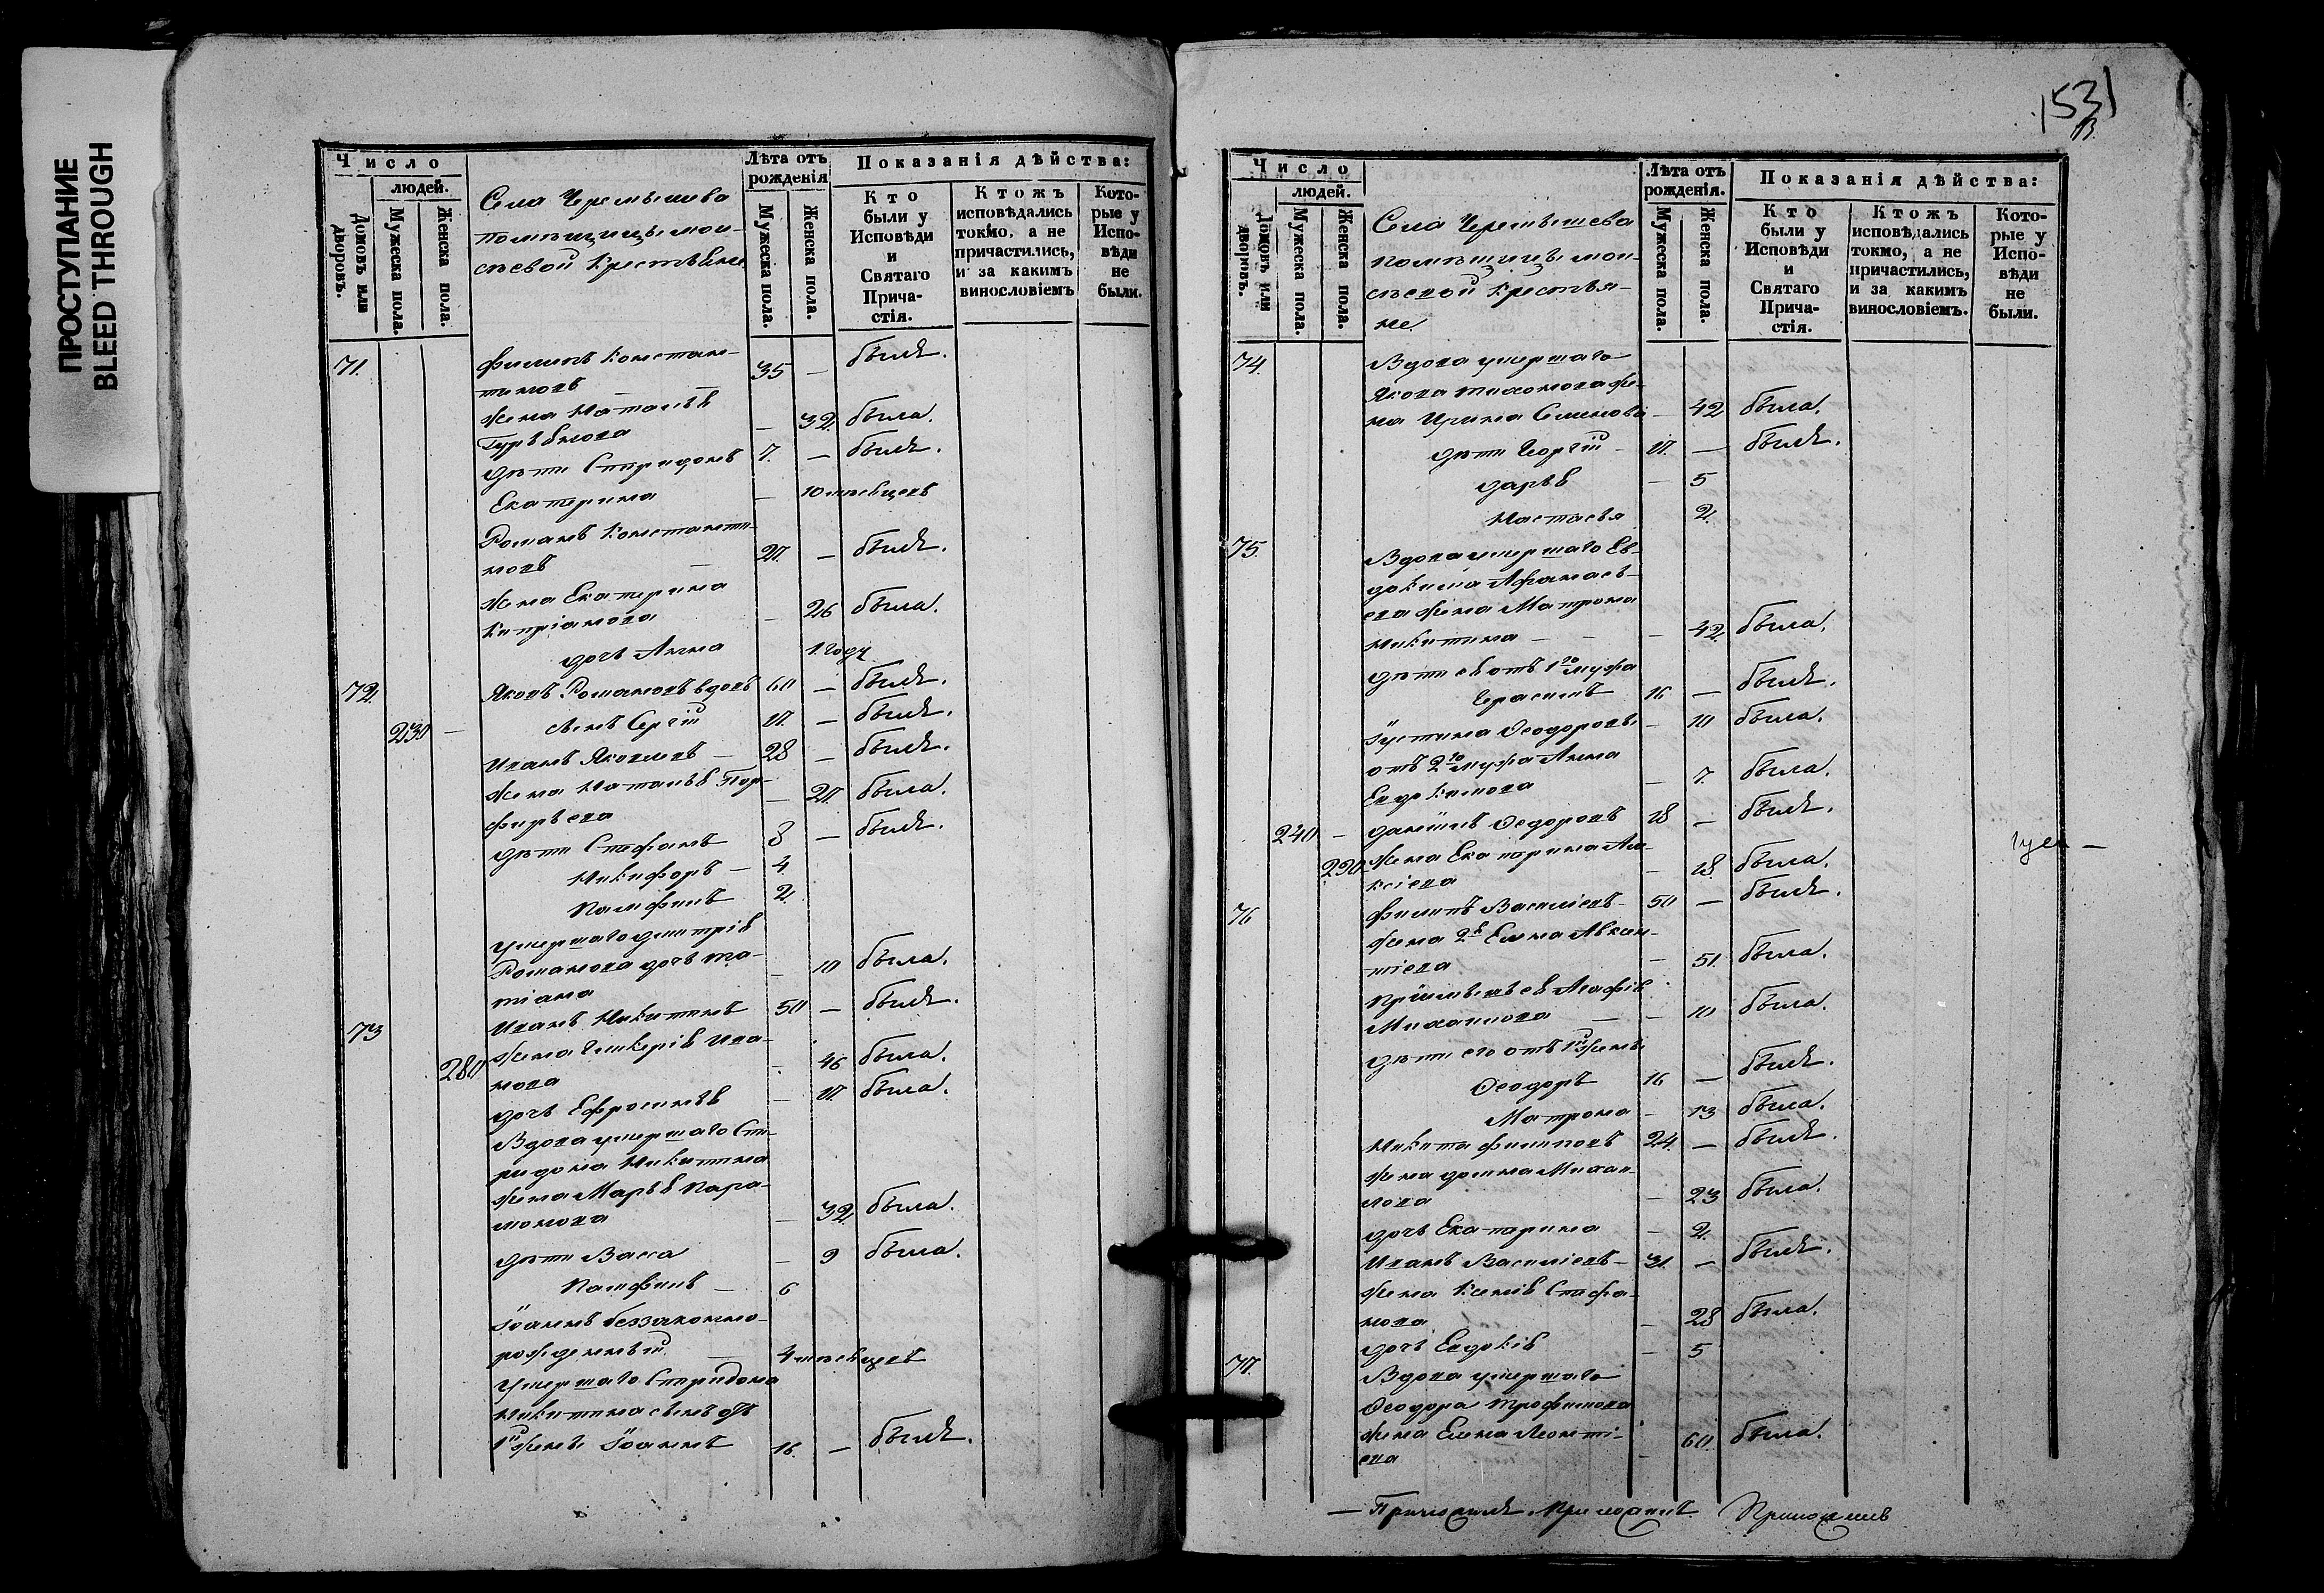 ПРОСТУПАНИЕ
BLEED THROUGH
Число
людей.
Домовъ или дворовъ.
Мужеска пола.
Женска пола.
Села Черемышева
помѣщицы Мои-
сѣевой крестьяне
Лѣта отъ рожденія
Мужеска пола.
Женска пола.
Показанія дѣйства:
Кто были у Исповѣди и Святаго Прича-стія.
Ктожъ исповѣдались токмо, а не причастились, и за какимъ винословіемъ
Кото-рые у Испо-вѣди не были.
71. Филипъ Констан-
тиновъ 35 — былъ.
жена Наталья
— 32 была.
дѣти Спиридонъ 7. — былъ.
Екатерина — 10 мѣсяцевъ
Романъ Константи-
новъ 27. — былъ.
жена Екатерина
Кипріанова — 26 была.
дочь Анна 1 году
72. Яковъ Романовъ вдовъ 60 — былъ.
230 — сынъ Сергій 17. — былъ.
Иванъ Яковлевъ — 28 — былъ.
жена Наталья Пор-
фирьева — 27. была.
дѣти Стефанъ 8 — былъ.
Никифоръ — 4
Памфилъ 2.
умершаго Дмитрія
Романова дочь Та-
тіана — 10 была.
73 Иванъ Никитинъ 50 — былъ.
280 жена Гликерія Ива-
нова — 46 была.
дочь Ефросинья — 17. была.
Вдова умершаго Спи-
ридона Никитина
жена Марья Пара-
монова — 32 была.
дѣти Васса — 9 была.
Памфилъ — 6
Іоаннъ беззаконно-
рожденный — 4 мѣсяцевъ
умершаго Спиридона
Никитина сынъ отъ
1й жены Іоаннъ 16. — былъ.
1531
Число
людей.
Домовъ или дворовъ.
Мужеска пола.
Женска пола.
Села Черемышева
помѣщицы Мои-
сѣевой крестья-
не
Лѣта отъ рожденія.
Мужеска пола.
Женска пола.
Показанія дѣйства:
Кто были у Исповѣди и Святаго Прича-стія.
Ктожъ исповѣдались токмо, а не причастились, и за какимъ винословіемъ.
Кото-рые у Испо-вѣди не были.
74. Вдова умершаго
Якова Тихонова же-
на Ирина Семенова — 42 была.
дѣти Георгій — 17. — былъ.
Дарья — 5
Настасья 2.
75. Вдова умершаго Ев-
докима Афанась-
ева жена Матрона
Никитина — — — 42 была.
дѣти ея отъ 1го мужа
Герасимъ 16 — былъ.
Іустина Ѳеодоровы — 10 была.
отъ 2го мужа Анна
Евдокимова — 7. была.
240 — Даніилъ Ѳедоровъ 18 — былъ.
290 жена Екатерина Але-
ксіева — 18. была.
76 Филипъ Василіевъ — 50 — былъ.
жена 2я Елена Авксен-
тіева — 51. была.
Агафія
Михаилова — — 10 была.
дѣти его отъ 1й жены
Ѳеодоръ 16 — былъ.
Матрона — 13 была.
Никита Филиповъ 24. — былъ.
жена Домна Михаи-
лова — 23 была.
дочь Екатерина — 2.
Иванъ Василіевъ — 31. — былъ.
жена Ксенія Стефа-
нова — 28 была.
дочь Евдокія — 5
77. Вдова умершаго
Ѳеодора Трофимова
жена Елена Леонті-
ева — 60 была.